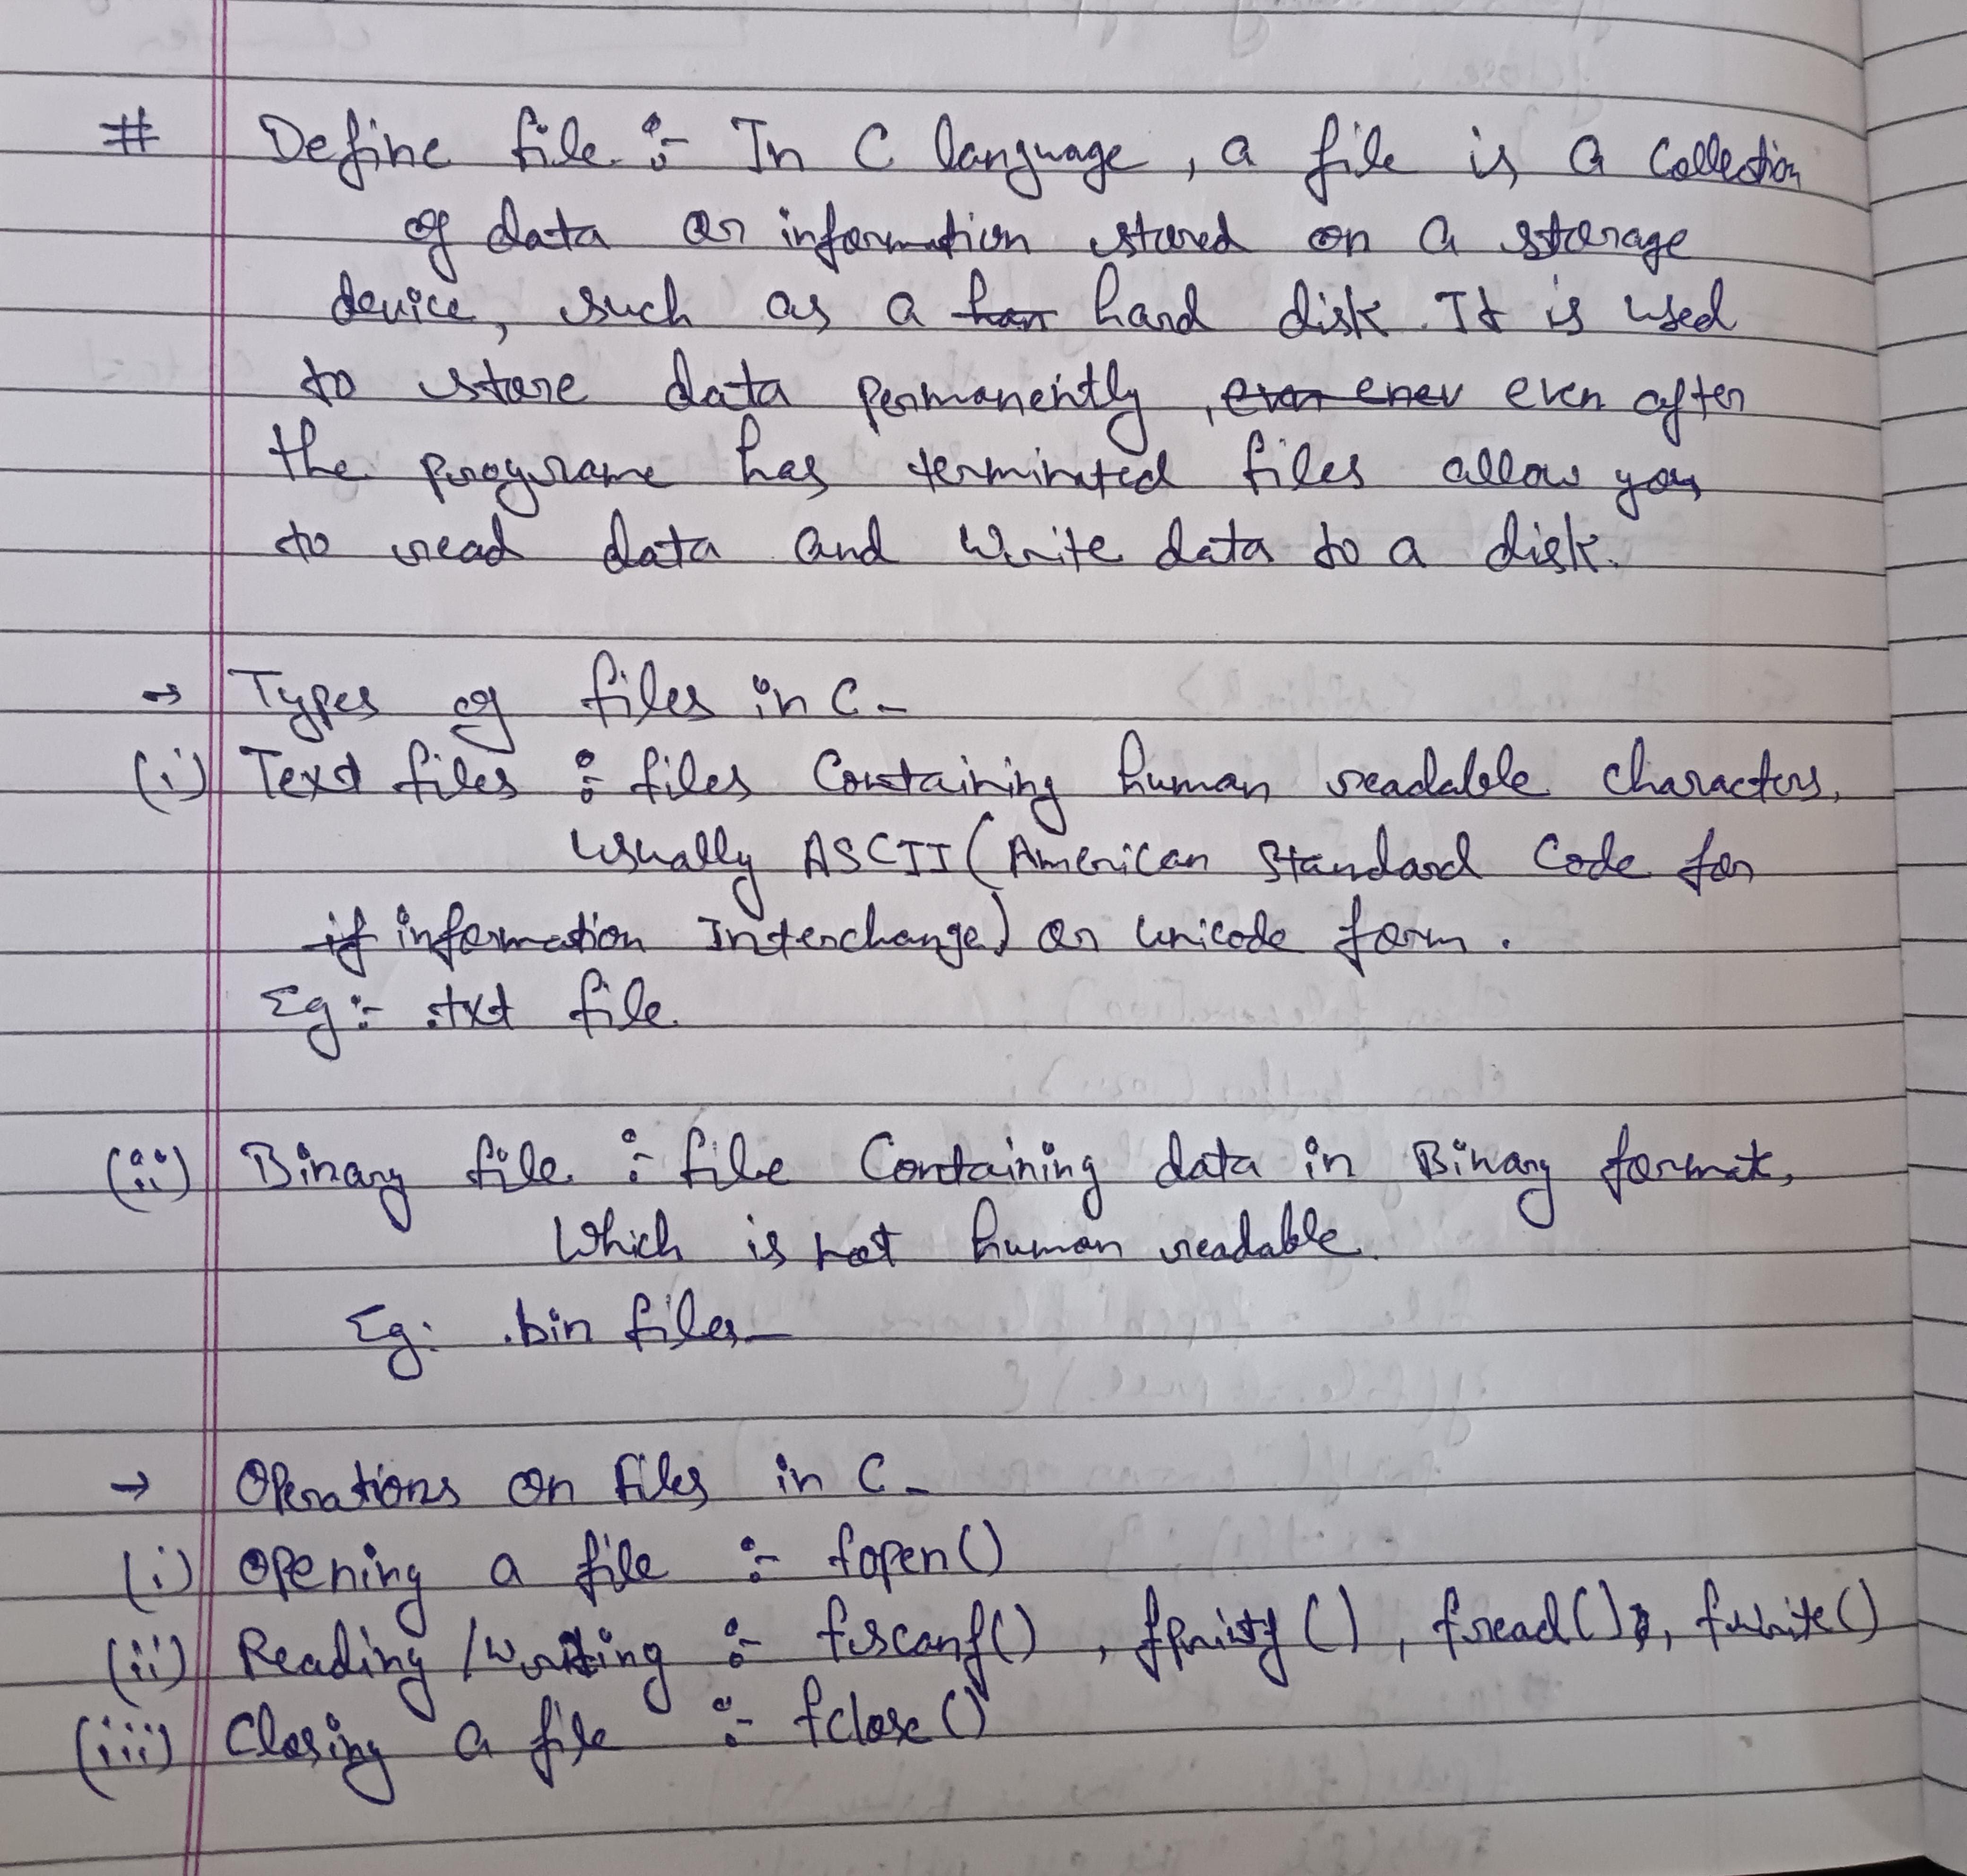 # Define file :- In C language, a file is a collection
of data or information stored on a storage
device, such as a har hard disk. It is used
to store data permanently, even enev even after
the programe has terminated files allow you
to read data and write data to a disk.
→ Types of files in C-
(i) Text files : files containing human readable characters,
usually ASCII (American Standard Code for
if information Interchange) or unicode form.
Eg :- .txt file
(ii) Binary file : file containing data in Binary format,
Which is not human readable.
Eg: .bin files
→ Operations on files in C-
(i) Opening a file :- fopen()
(ii) Reading /writing :- fscanf() , fprintf() , fread(), fwrite()
(iii) Closing a file :- fclose()